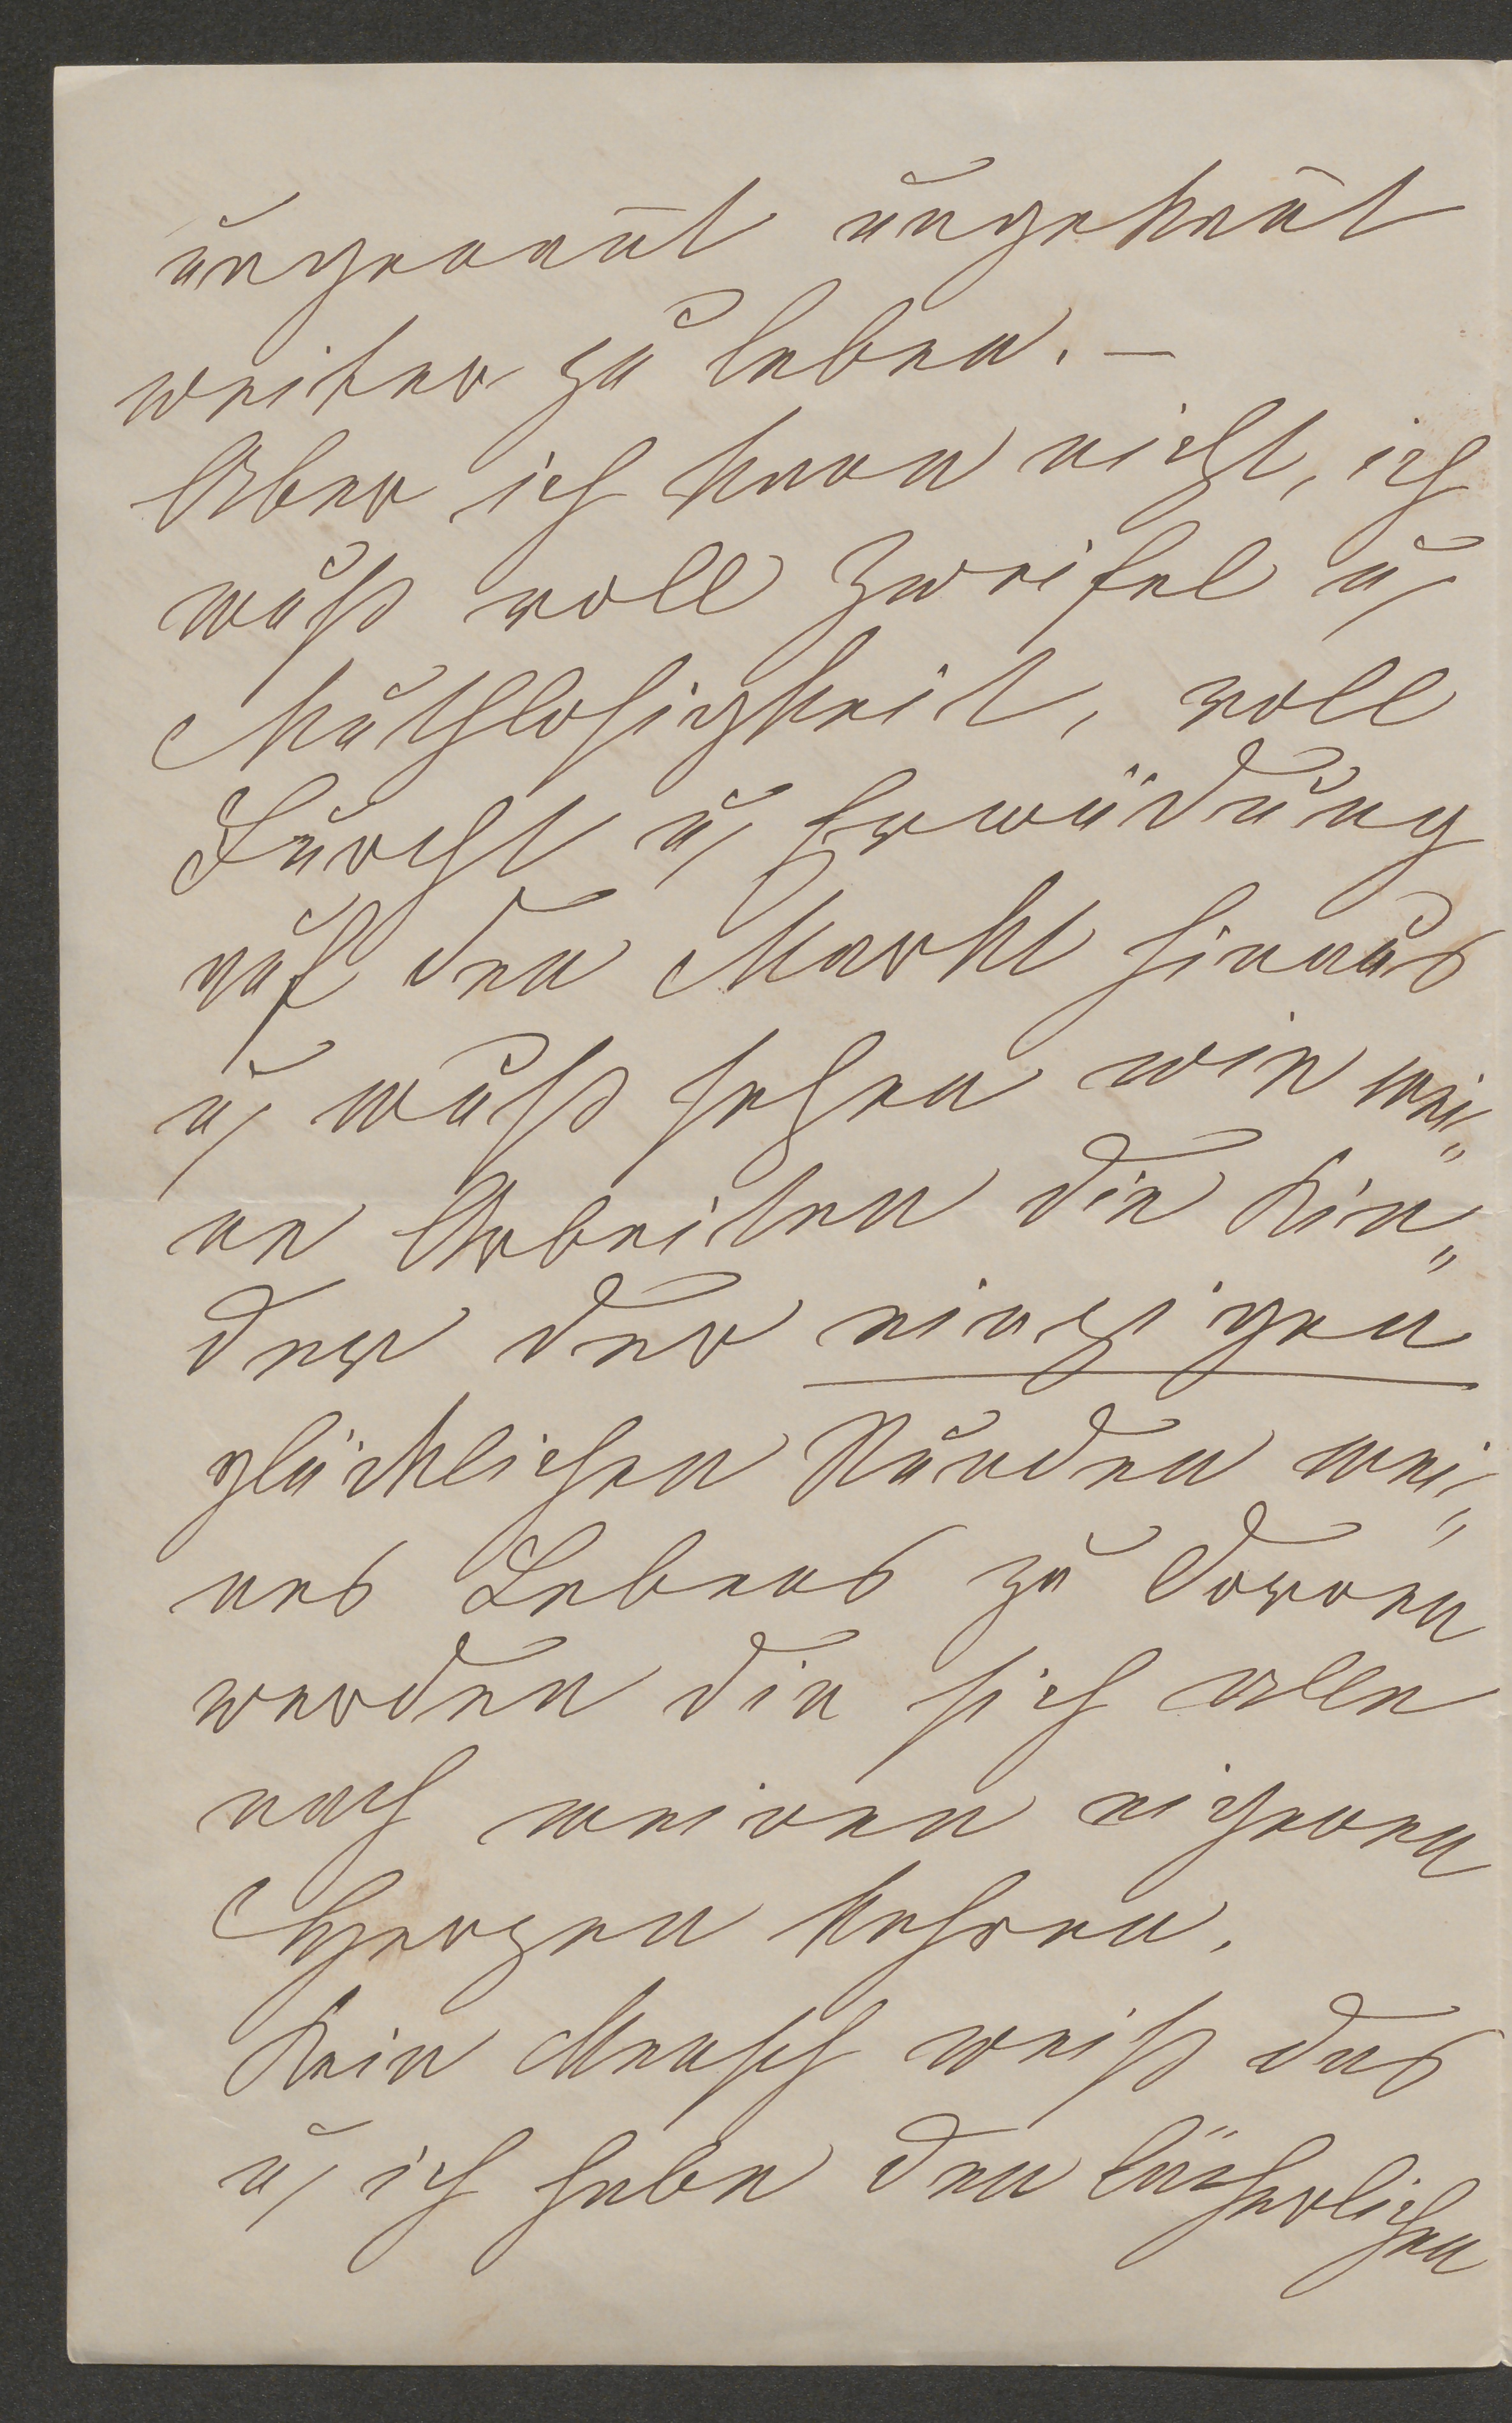 ungenan̄t ungekan̄t
weiter zu leben. –
Aber ich kann nicht, ich
muß voll Zweifel u
Muthlosigkeit, voll
Furcht u Ermüdung
auf den Markt hinaus
u muß sehen wie mei„
ne Arbeiten die Kin„
der der einzigen
glücklichen Stunden mei„
nes Lebens zu Dornen
werden die sich alle
nach meinem eigenen
Herzen kehren.
Kein Mensch weiß das
u ich habe den lächerlichen